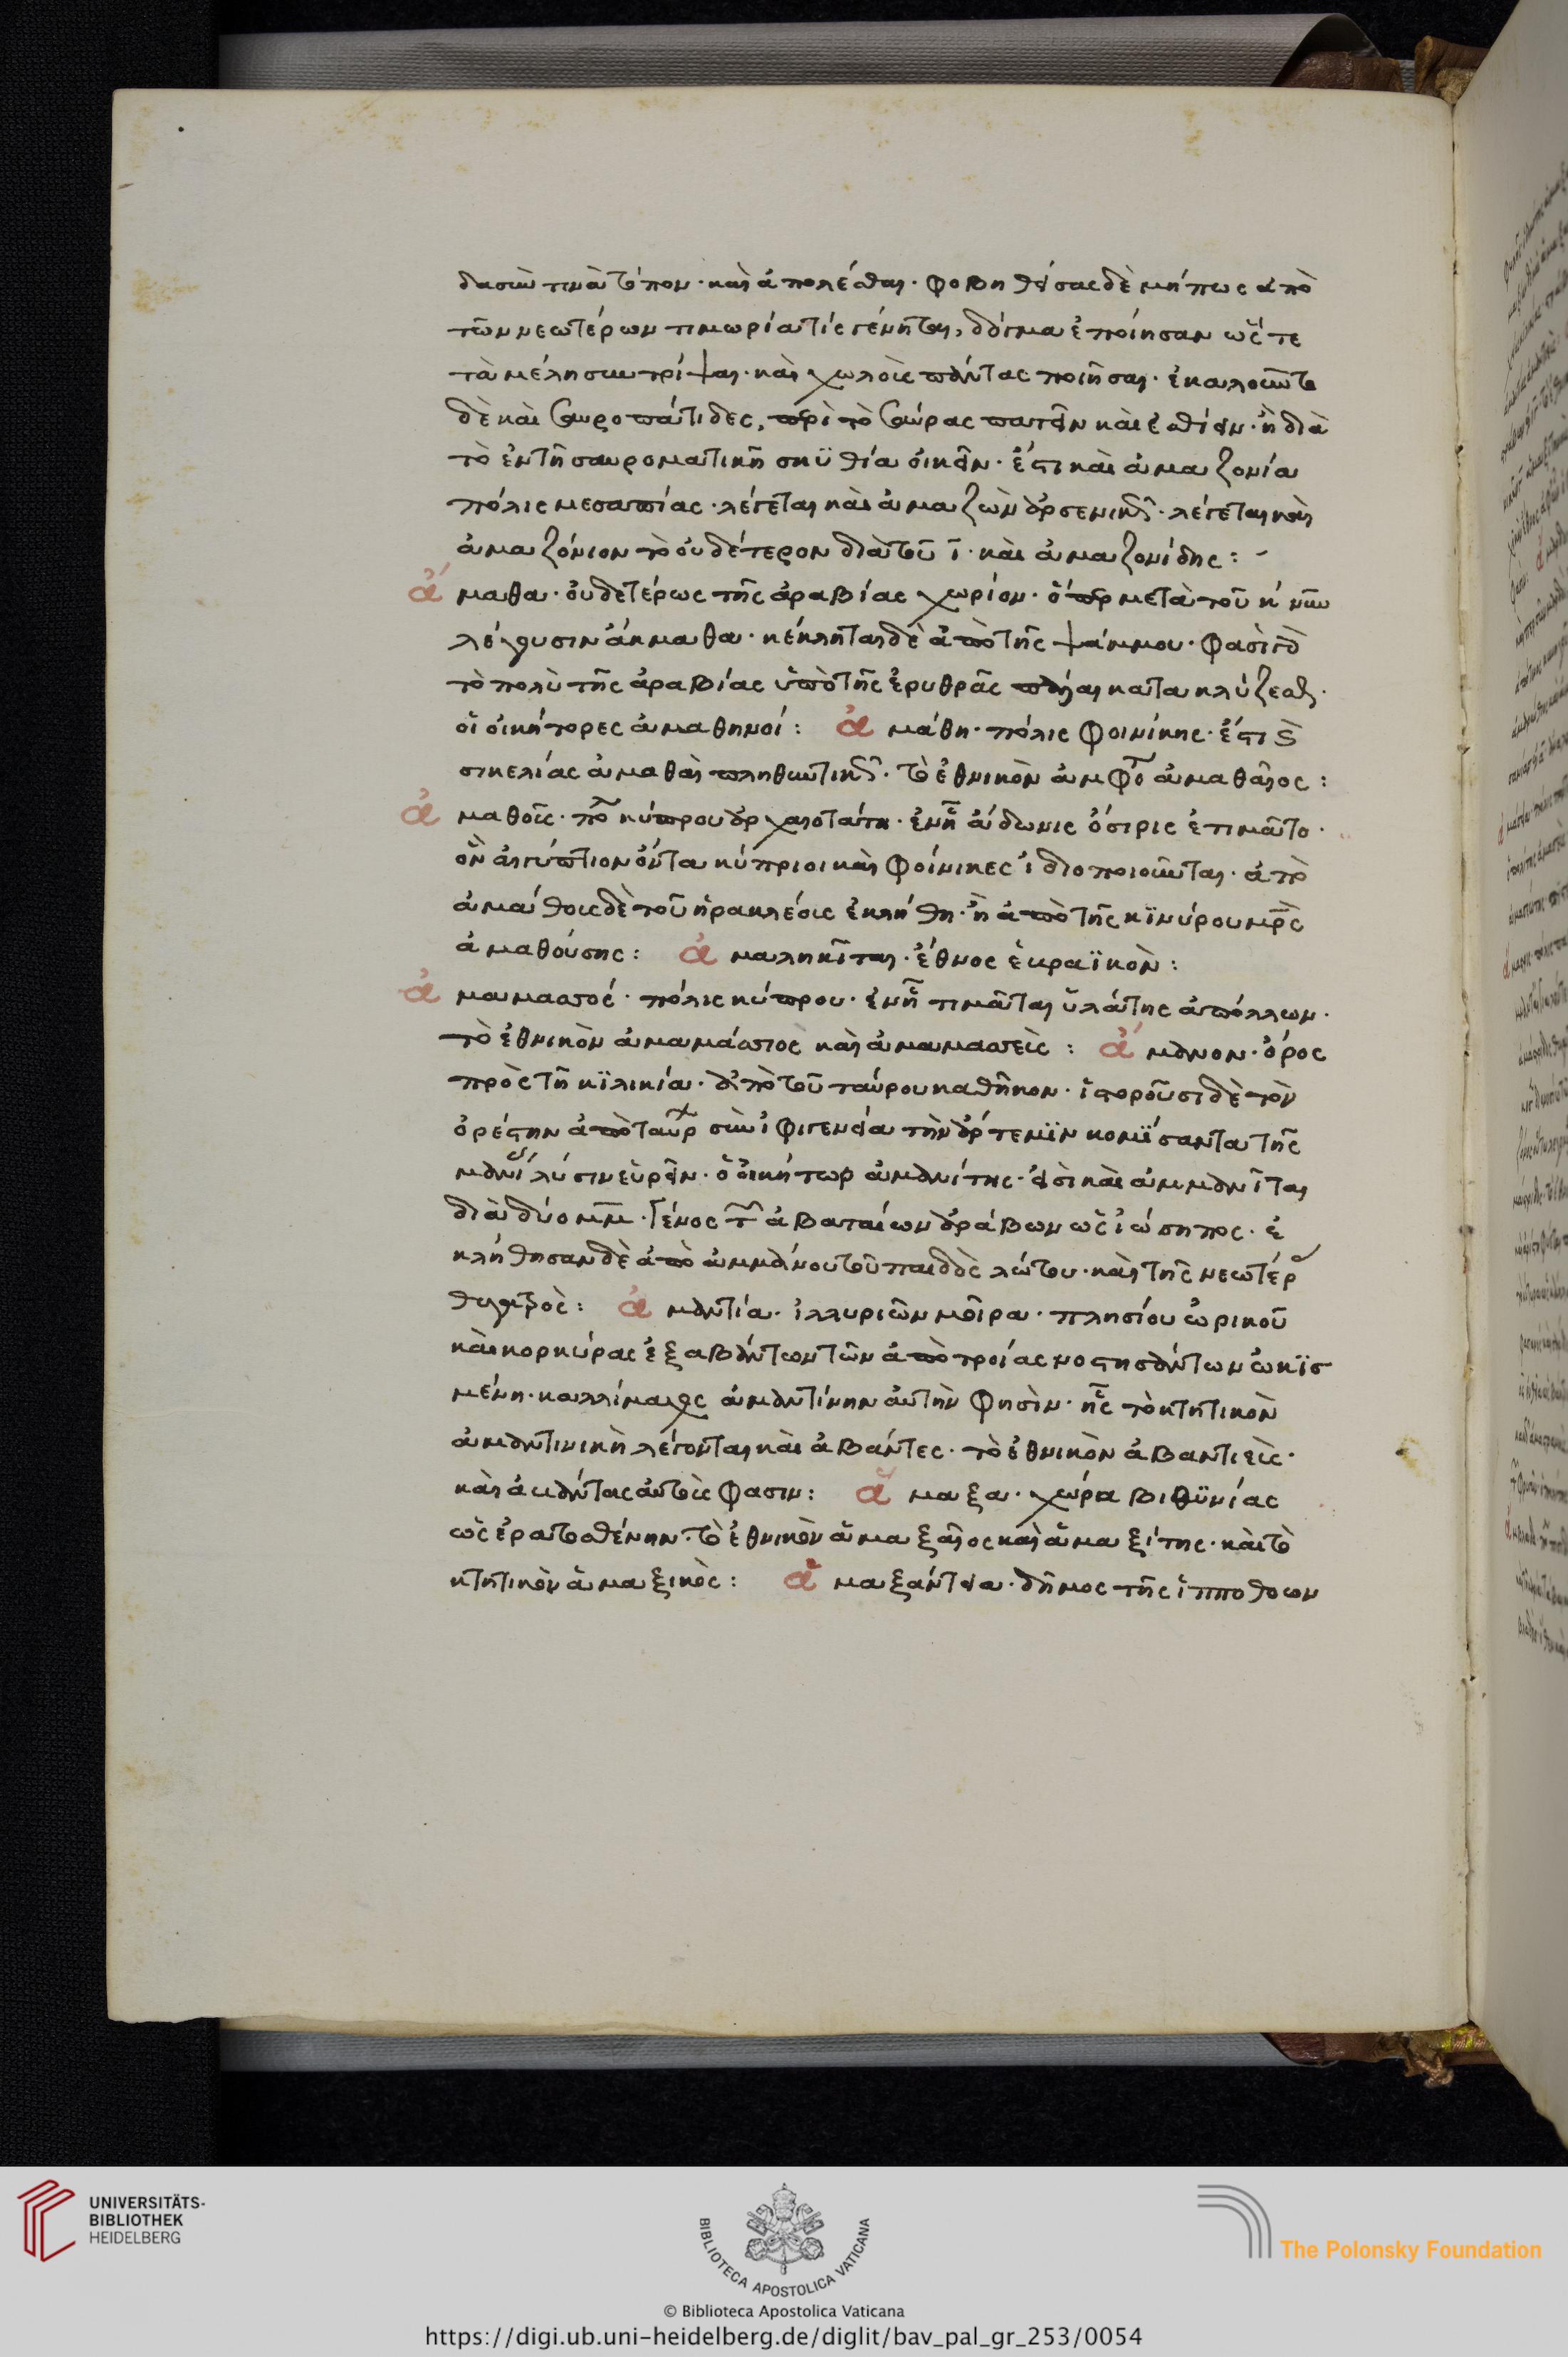 δασὺν τινὰ τόπον· καὶ ἀπολέσθαι. φοβηθεῖσαι δὲ μήπως ἀπὸ
τῶν νεωτέρων τιμωρία τὶς γένηται, δόγμα ἐποίησαν ὥστε
τὰ μέλη συντρίψαι· καὶ χωλοὺς πάντας ποιῆσαι. ἐκαλοῦντο
δὲ καὶ σαυροπάτιδες, παρὰ τὸ σαύρας πατεῖν καὶ ἐσθίειν. ἢ διὰ
τὸ ἐν τῆ σαυροματικῆ σκϋθία οἰκεῖν. ἔστι καὶ ἀμαζονία
πόλις μεσαπίας. λέγεται καὶ ἀμαζὼν ἀρσενικῶς. λέγεται καὶ
ἀμαζόνιον τὸ οὐδέτερον διὰ τοῦ ῑ. καὶ ἀμαζονίδης: -
ἄμαθα. οὐδετέρως τῆς ἀραβίας χωρίον. ὅπερ μετὰ τοῦ κ νῦν
λέγουσιν ἄκμαθα. κέκληται δὲ ἀπὸ τῆς ψάμμου. φασὶ γὰρ
τὸ πολὺ τῆς ἀραβίας ὑπὸ τῆς ἐρυθρᾶς πάλαι κατακλύζεσθαι.
οἱ οἰκήτορες ἀμαθηνοί: ἀμάθη. πόλις φοινίκης. ἔστι καὶ
σικελίας ἀμαθαὶ πληθυντικῶς. τὸ ἐθνικὸν ἀμφοῖν ἀμαθαῖος:
ἀμαθοῦς. πόλις κύπρου ἀρχαιοτάτη. ἐν ἧ ἄδωνις ὄσιρις ἐτιμᾶτο.
ὃν αἰγύπτιον ὄντα κύπριοι καὶ φοίνικες ἰδιοποιοῦνται. ἀπὸ
ἀμάθους δὲ τοῦ ἡρακλέους ἐκλήθη. ἢ ἀπὸ τῆς κϊνύρου μρ̅ὸς
ἀμαθούσης: ἀμαληκῖται. ἔθνος ἑκραϊκὸν:
ἀμαμασσός. πόλις κύπρου. ἐν ἧ τιμᾶται ὑλάτης ἀπόλλων.
τὸ ἐθνικὸν ἀμαμάσσιος καὶ ἀμαμασσεὺς: ἄμανον. ὄρος
πρὸς τῆ κϊλικία. ἀπὸ τοῦ ταύρου καθῆκον. ἱστοροῦσι δὲ τὸν
ὀρέστην ἀπὸ ταύρων σὺν ἰφιγενεία τὴν ἄρτεμϊν κομϊσαντα τῆς
μανίας λύσιν εὑρεῖν. ὁ οἰκήτωρ ἀμανίτης. εἰσὶ καὶ ἀμμανῖται
διὰ δύο μμ. γένος τῶν ἀβαταίων ἀράβων ὡς ἰώσηπος. ἐ
κλήθησαν δὲ ἀπὸ ἀμμάνου τοῦ παιδὸς λώτου. καὶ τῆς νεωτέρας
θυγατρὸς: ἀμαντία. ἰλλυριῶν μοῖρα. πλησίον ὠρικοῦ
καὶ κορκύρας ἐξ ἀβάντων τῶν ἀπὸ τροίας νοστησάντων ὠκϊσ
μένη. καλλίμαχος ἀμαντίνην αὐτὴν φησὶν. ἧς τὸ κτητικὸν
ἀμαντινικὴ λέγονται καὶ ἀβαντες. τὸ ἐθνικὸν ἀβαντιεὺς.
καὶ ἀμάντας αὐτοὺς φασιν: ἅμαξα. χώρα βιθϋνίας
ὡς ἐρατοσθένην. τὸ ἐθνικὸν ἁμαξαῖος καὶ ἁμαξίτης. καὶ τὸ
κτητικὸν ἁμαξικὸς: ἁμαξάντεια. δῆμος τῆς ἱπποθοων
UNIVERSITÄTS-
BIBLIOTHEK
HEIDELBERG
BIBLIOTECA APOSTOLICA VATICANA
The Polonsky Foundation
© Biblioteca Apostolica Vaticana
https://digi.ub.uni-heidelberg.de/diglit/bav_pal_gr_253/0054